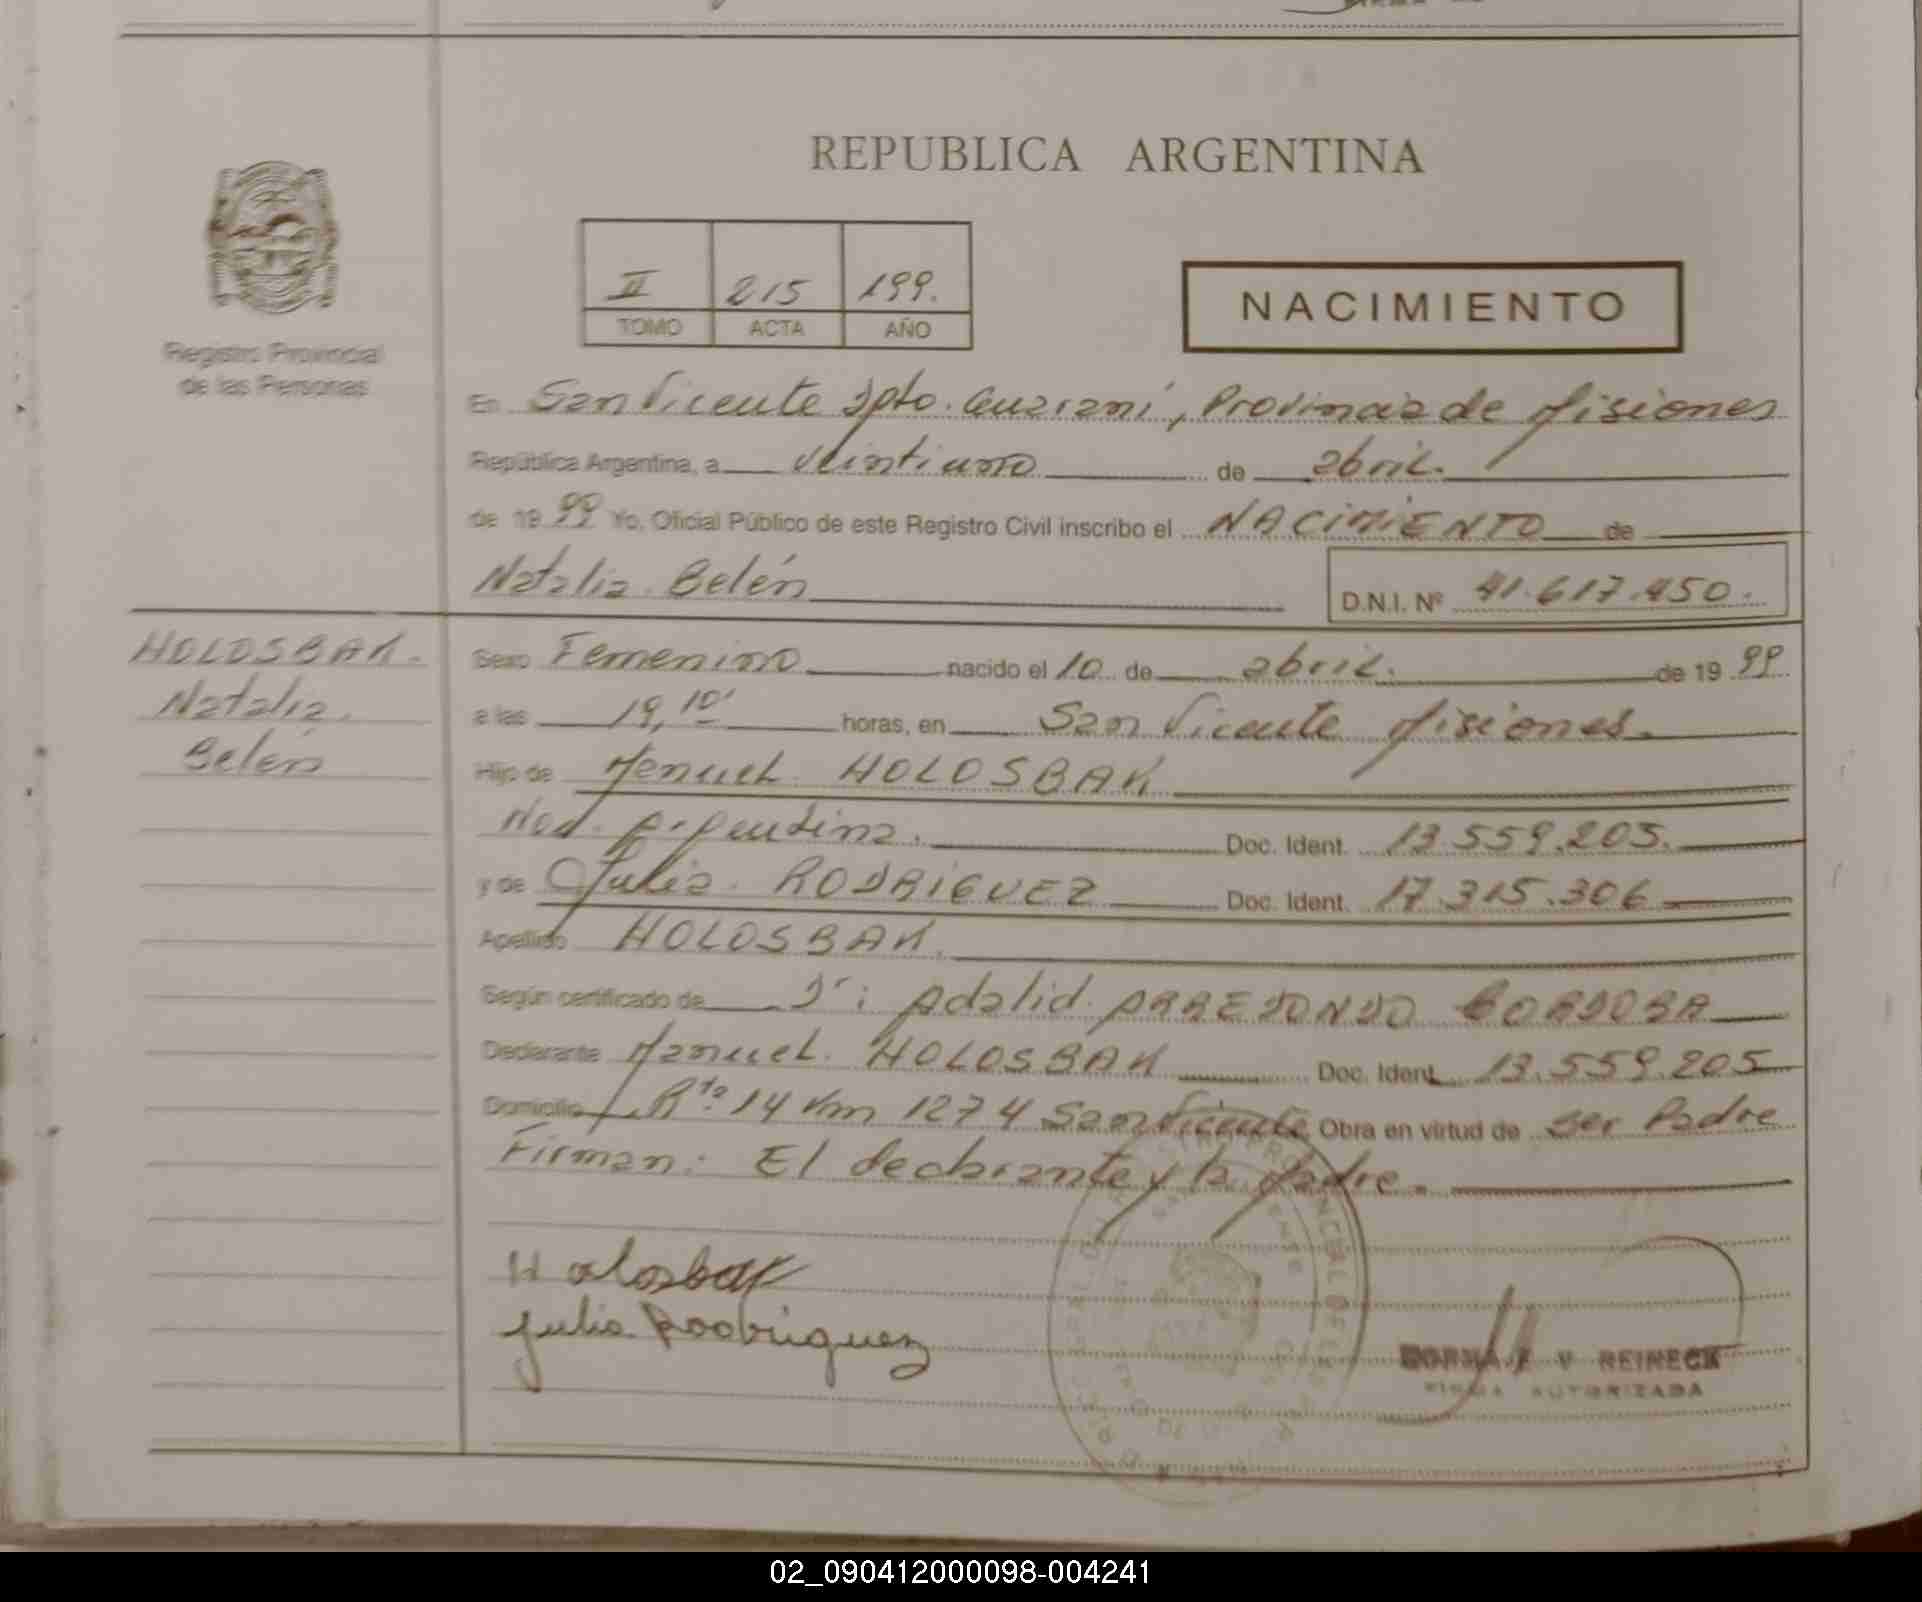 REPUBLICA ARGENTINA
II 215 199.
TOMO ACTA AÑO
NACIMIENTO
Registro Provincial
de las Personas
En San Vicente Dpto. Guaraní, Provincia de Misiones
República Argentina, a veintiuno de abril.
de 1999 Yo, Oficial Público de este Registro Civil inscribo el NACIMIENTO de
Natalia Belén
D.N.I. Nº 41.617.450.
HOLOSBAK.
Natalia
Belén
Sexo Femenino nacido el 10 de abril. de 1999
a las 19,10' horas, en San Vicente Misiones.
Hijo de Manuel HOLOSBAK
Nac. Argentina. Doc. Ident. 13.559.205.
y de Julia RODRIGUEZ Doc. Ident. 17.315.306
Apellido HOLOSBAK.
Según certificado de Dr: Adalid ARREDONDO CORDOBA
Declarante Manuel HOLOSBAK Doc. Ident. 13.559.205
Domicilio Rta 14 Km 1274 San Vicente Obra en virtud de ser Padre
Firman: El declarante y la Madre.
Holosbak
Julia Rodriguez
V REINECK
FIRMA AUTORIZADA
02_090412000098-004241